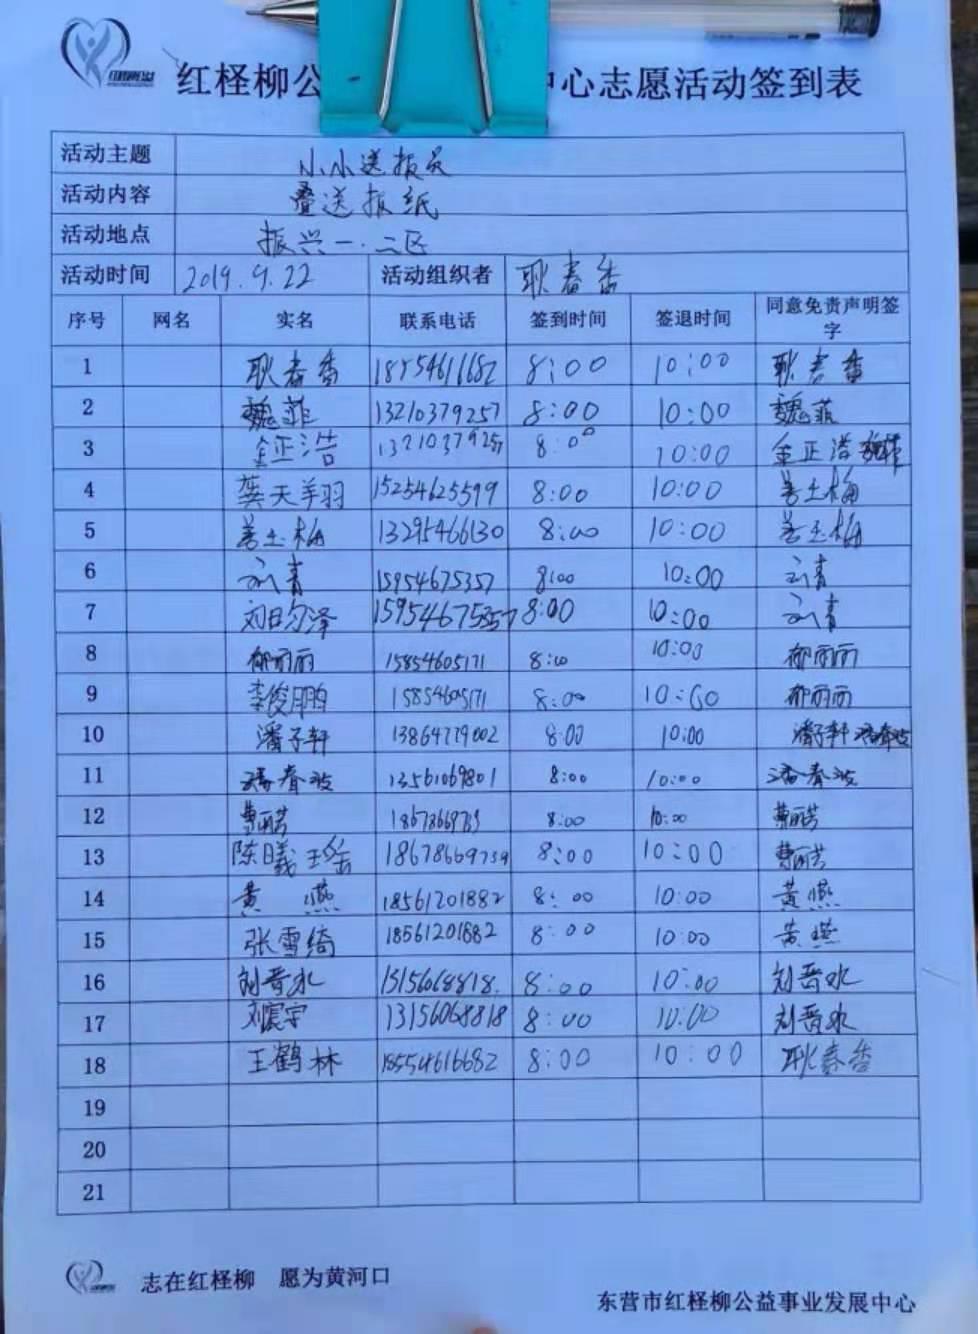 红柽柳公 中心志愿活动签到表
活动主题 小小送报员
活动内容 叠送报纸
活动地点 振兴一.二区
活动时间 2019.9.22 活动组织者 耿春香
序号 网名 实名 联系电话 签到时间 签退时间 同意免责声明签字
1 耿春香 18554616682 8:00 10:00 耿春香
2 魏菲 13210379257 8:00 10:00 魏菲
3 金正浩 13210379257 8:00 10:00 金正浩 魏菲
4 龚天羽 15254625599 8:00 10:00 姜土梅
5 姜土梅 13295466130 8:00 10:00 姜土梅
6 刘青 15954675357 8:00 10:00 刘青
7 刘日匀泽 15954675357 8:00 10:00 刘青
8 郁丽丽 15854605171 8:00 10:00 郁丽丽
9 李俊鹏 15854605171 8:00 10:00 郁丽丽
10 潘子轩 13864779002 8:00 10:00 潘子轩 潘春波
11 潘春波 13561069801 8:00 10:00 潘春波
12 曹丽芳 8:00 10:00 曹丽芳
13 陈曦 18678669739 8:00 10:00 曹丽芳
14 黄燕 18561201882 8:00 10:00 黄燕
15 张雪绮 18561201882 8:00 10:00 黄燕
16 刘晋水 8:00 10:00 刘晋水
17 刘宸宇 13156068818 8:00 10:00 刘晋水
18 王鹤林 18554616682 8:00 10:00 耿春香
19
20
21
志在红柽柳 愿为黄河口
东营市红柽柳公益事业发展中心